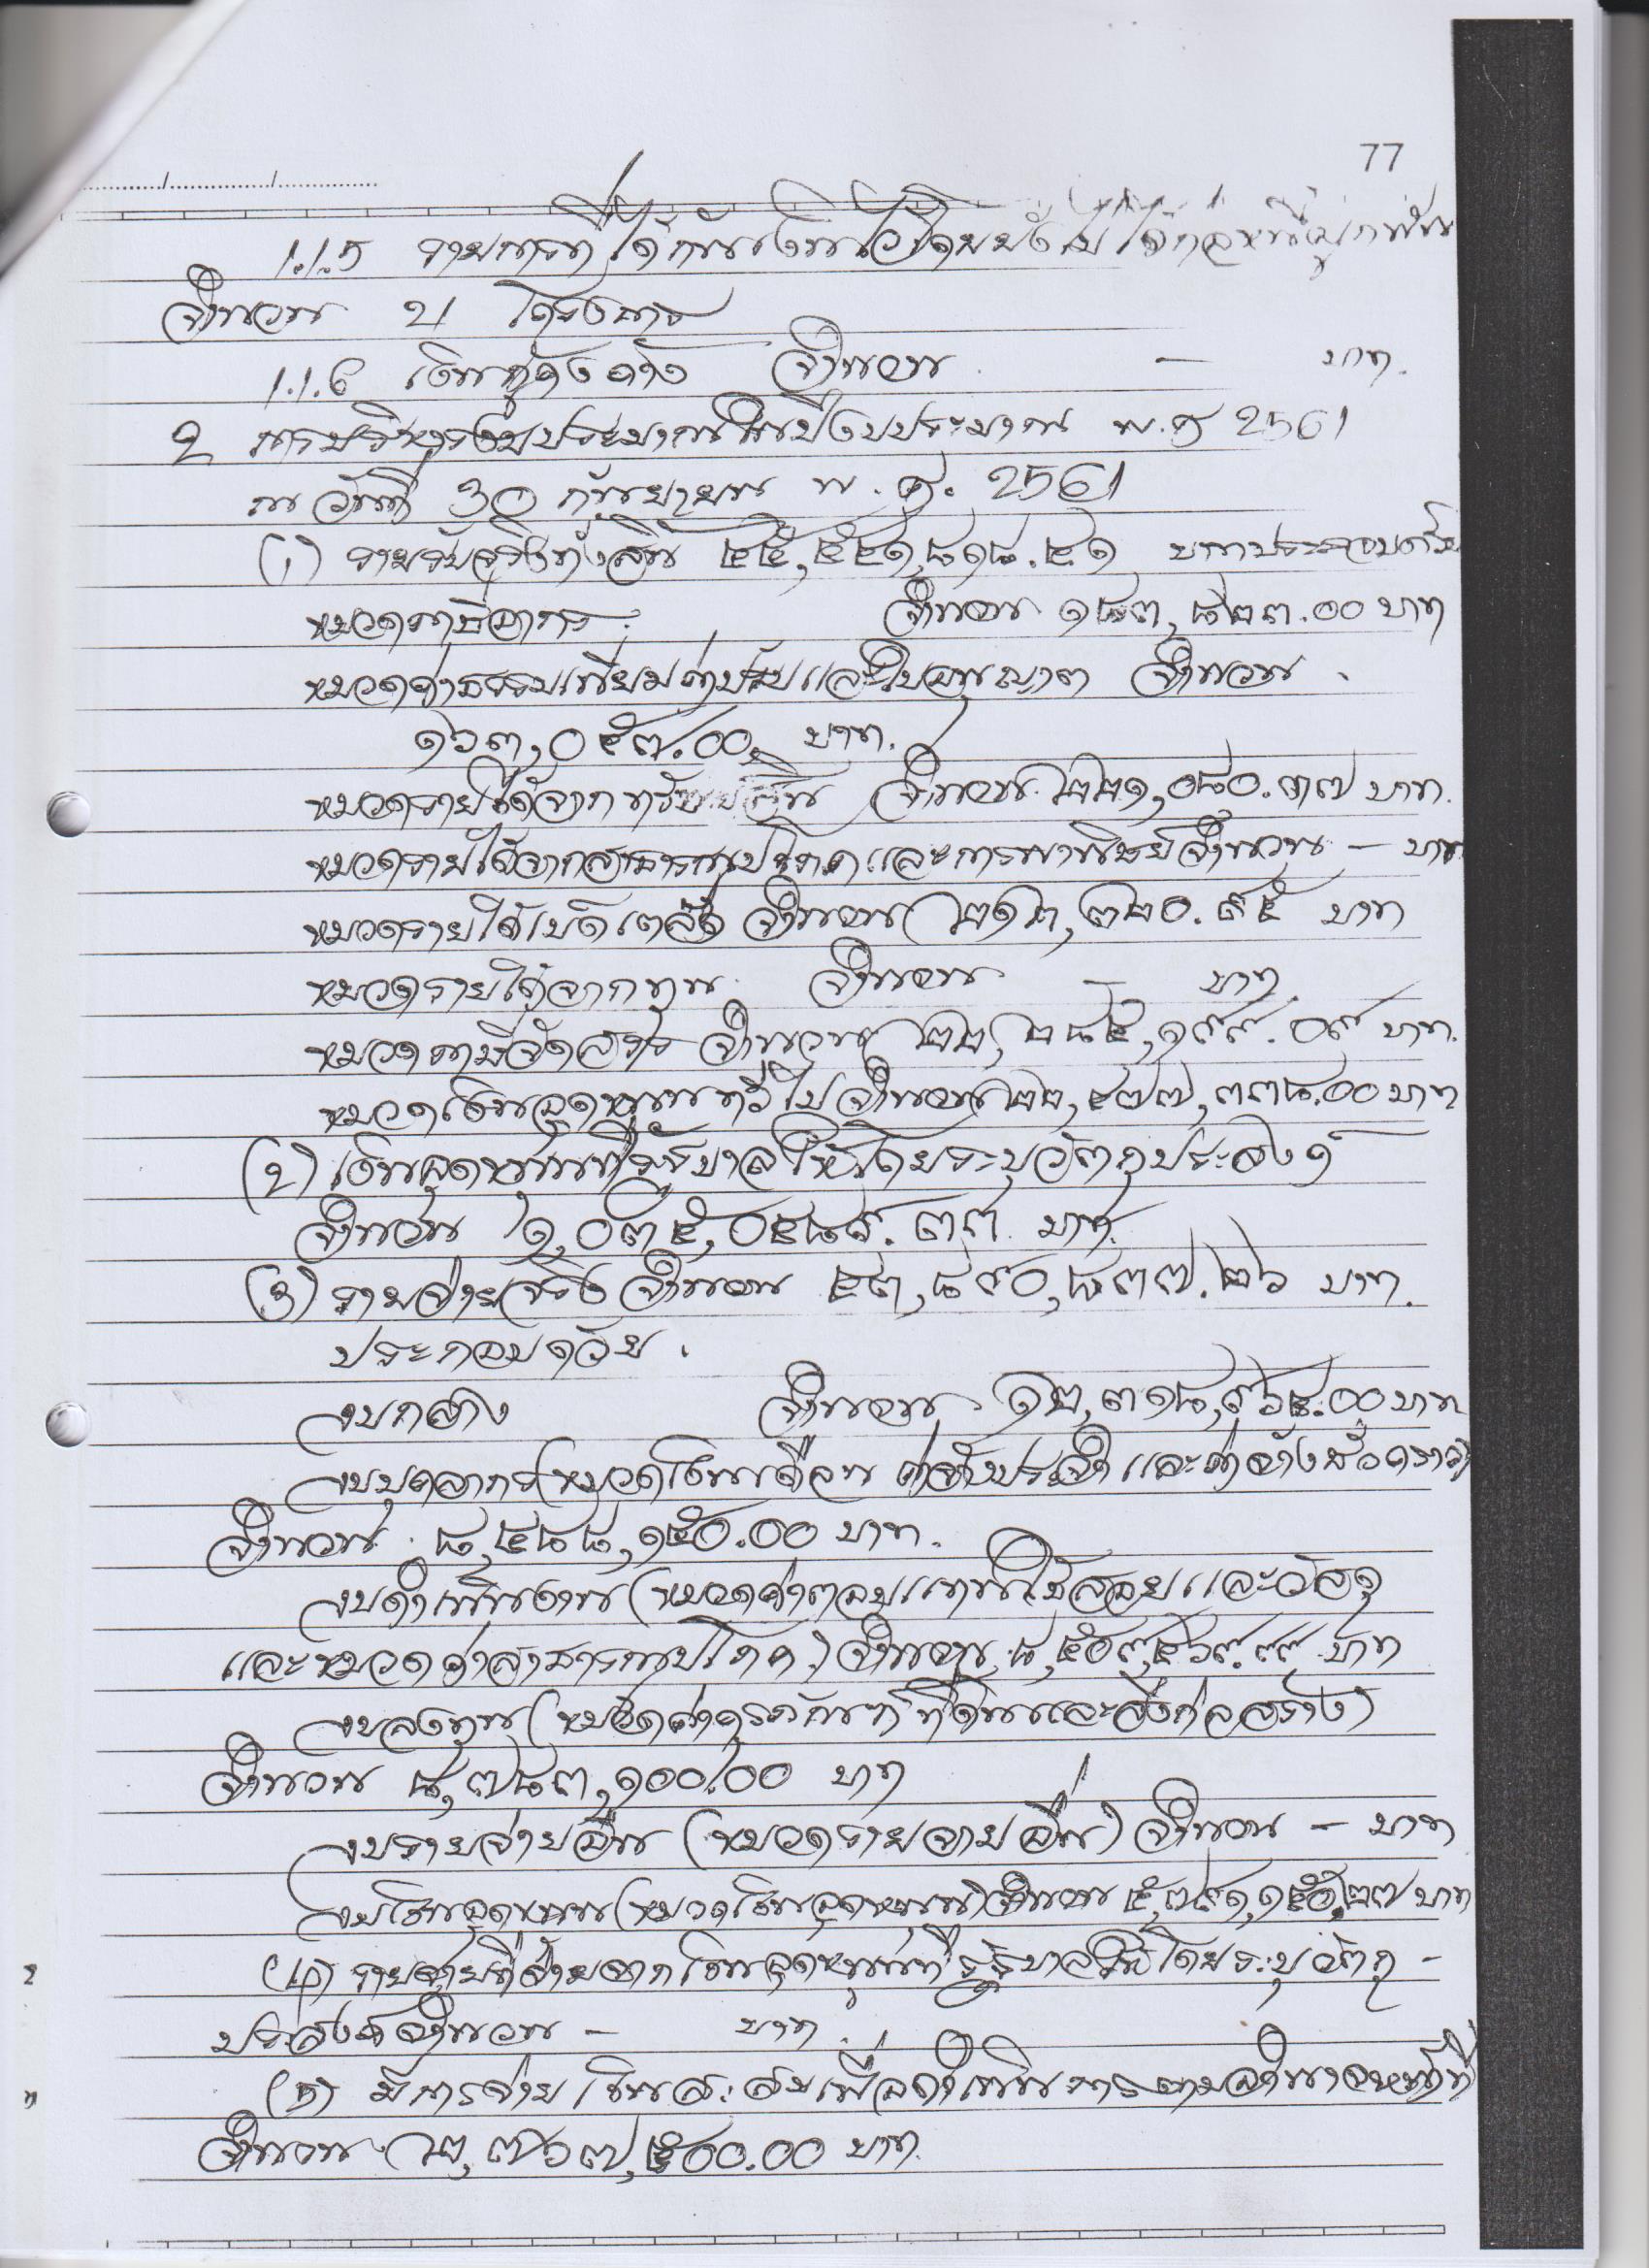 77
1.1.5 รายการที่ได้กันเงินไว้โดยยังไม่ได้ก่อหนี้ผูกพัน
จำนวน 21 โครงการ
1.1.6 เงินกู้คงค้าง จำนวน - บาท.
2 การบริหารงบประมาณในปีงบประมาณ พ.ศ 2561
ณ วันที่ 30 กันยายน พ.ศ. 2561
(1) รายรับจริงทั้งสิ้น ๔๕,๕๔๑,๘๑๘.๔๑ บาทประกอบด้วย
หมวดภาษีอากร จำนวน ๑๘๓,๘๒๓.๐๐ บาท
หมวดค่าธรรมเนียมค่าปรับและใบอนุญาต จำนวน
๑๖๓,๐๕๗.๐๐ บาท.
หมวดรายได้จากทรัพย์สิน จำนวน ๒๒๑,๐๘๐.๓๗ บาท.
หมวดรายได้จากสาธารณูปโภคและการพาณิชย์จำนวน - บาท
หมวดรายได้เบ็ดเตล็ด จำนวน ๒๑๒,๓๒๐.๙๕ บาท
หมวดรายได้จากทุน จำนวน - บาท
หมวดภาษีจัดสรร จำนวน ๒๒,๒๘๔,๑๙๙.๐๙ บาท.
หมวดเงินอุดหนุนทั่วไปจำนวน ๒๒,๔๗๗,๓๓๘.๐๐ บาท
(2) เงินอุดหนุนที่รัฐบาลให้โดยระบุวัตถุประสงค์
จำนวน ๑,๐๓๕,๐๔๘๙.๓๓ บาท.
(3) รายจ่ายจริง จำนวน ๔๓,๘๙๐,๘๓๗.๒๖ บาท.
ประกอบด้วย.
งบกลาง จำนวน ๑๒,๓๑๘,๙๖๔.๐๐ บาท
งบบุคลากร(หมวดเงินเดือน ค่าจ้างประจำ และค่าจ้างชั่วคราว)
จำนวน ๘,๔๘๘,๑๕๐.๐๐ บาท.
งบดำเนินงาน (หมวดค่าตอบแทนใช้สอยและวัสดุ
และหมวดค่าสาธารณูปโภค) จำนวน ๘,๕๐๙,๔๖๙.๙๙ บาท
งบลงทุน (หมวดค่าครุภัณฑ์ ที่ดินและสิ่งก่อสร้าง)
จำนวน ๘,๗๘๓,๑๐๐.๐๐ บาท
งบรายจ่ายอื่น (หมวดรายจ่ายอื่น) จำนวน - บาท
งบเงินอุดหนุน (หมวดเงินอุดหนุน) จำนวน ๕,๗๙๑,๑๕๐.๒๗ บาท
(4) รายจ่ายที่จ่ายจากเงินอุดหนุนที่รัฐบาลให้โดยระบุวัตถุ-
ประสงค์จำนวน - บาท.
(5) มีการจ่ายเงินสะสมเพื่อดำเนินการตามอำนาจหน้าที่
จำนวน ๒,๗๖๗,๕๐๐.๐๐ บาท.